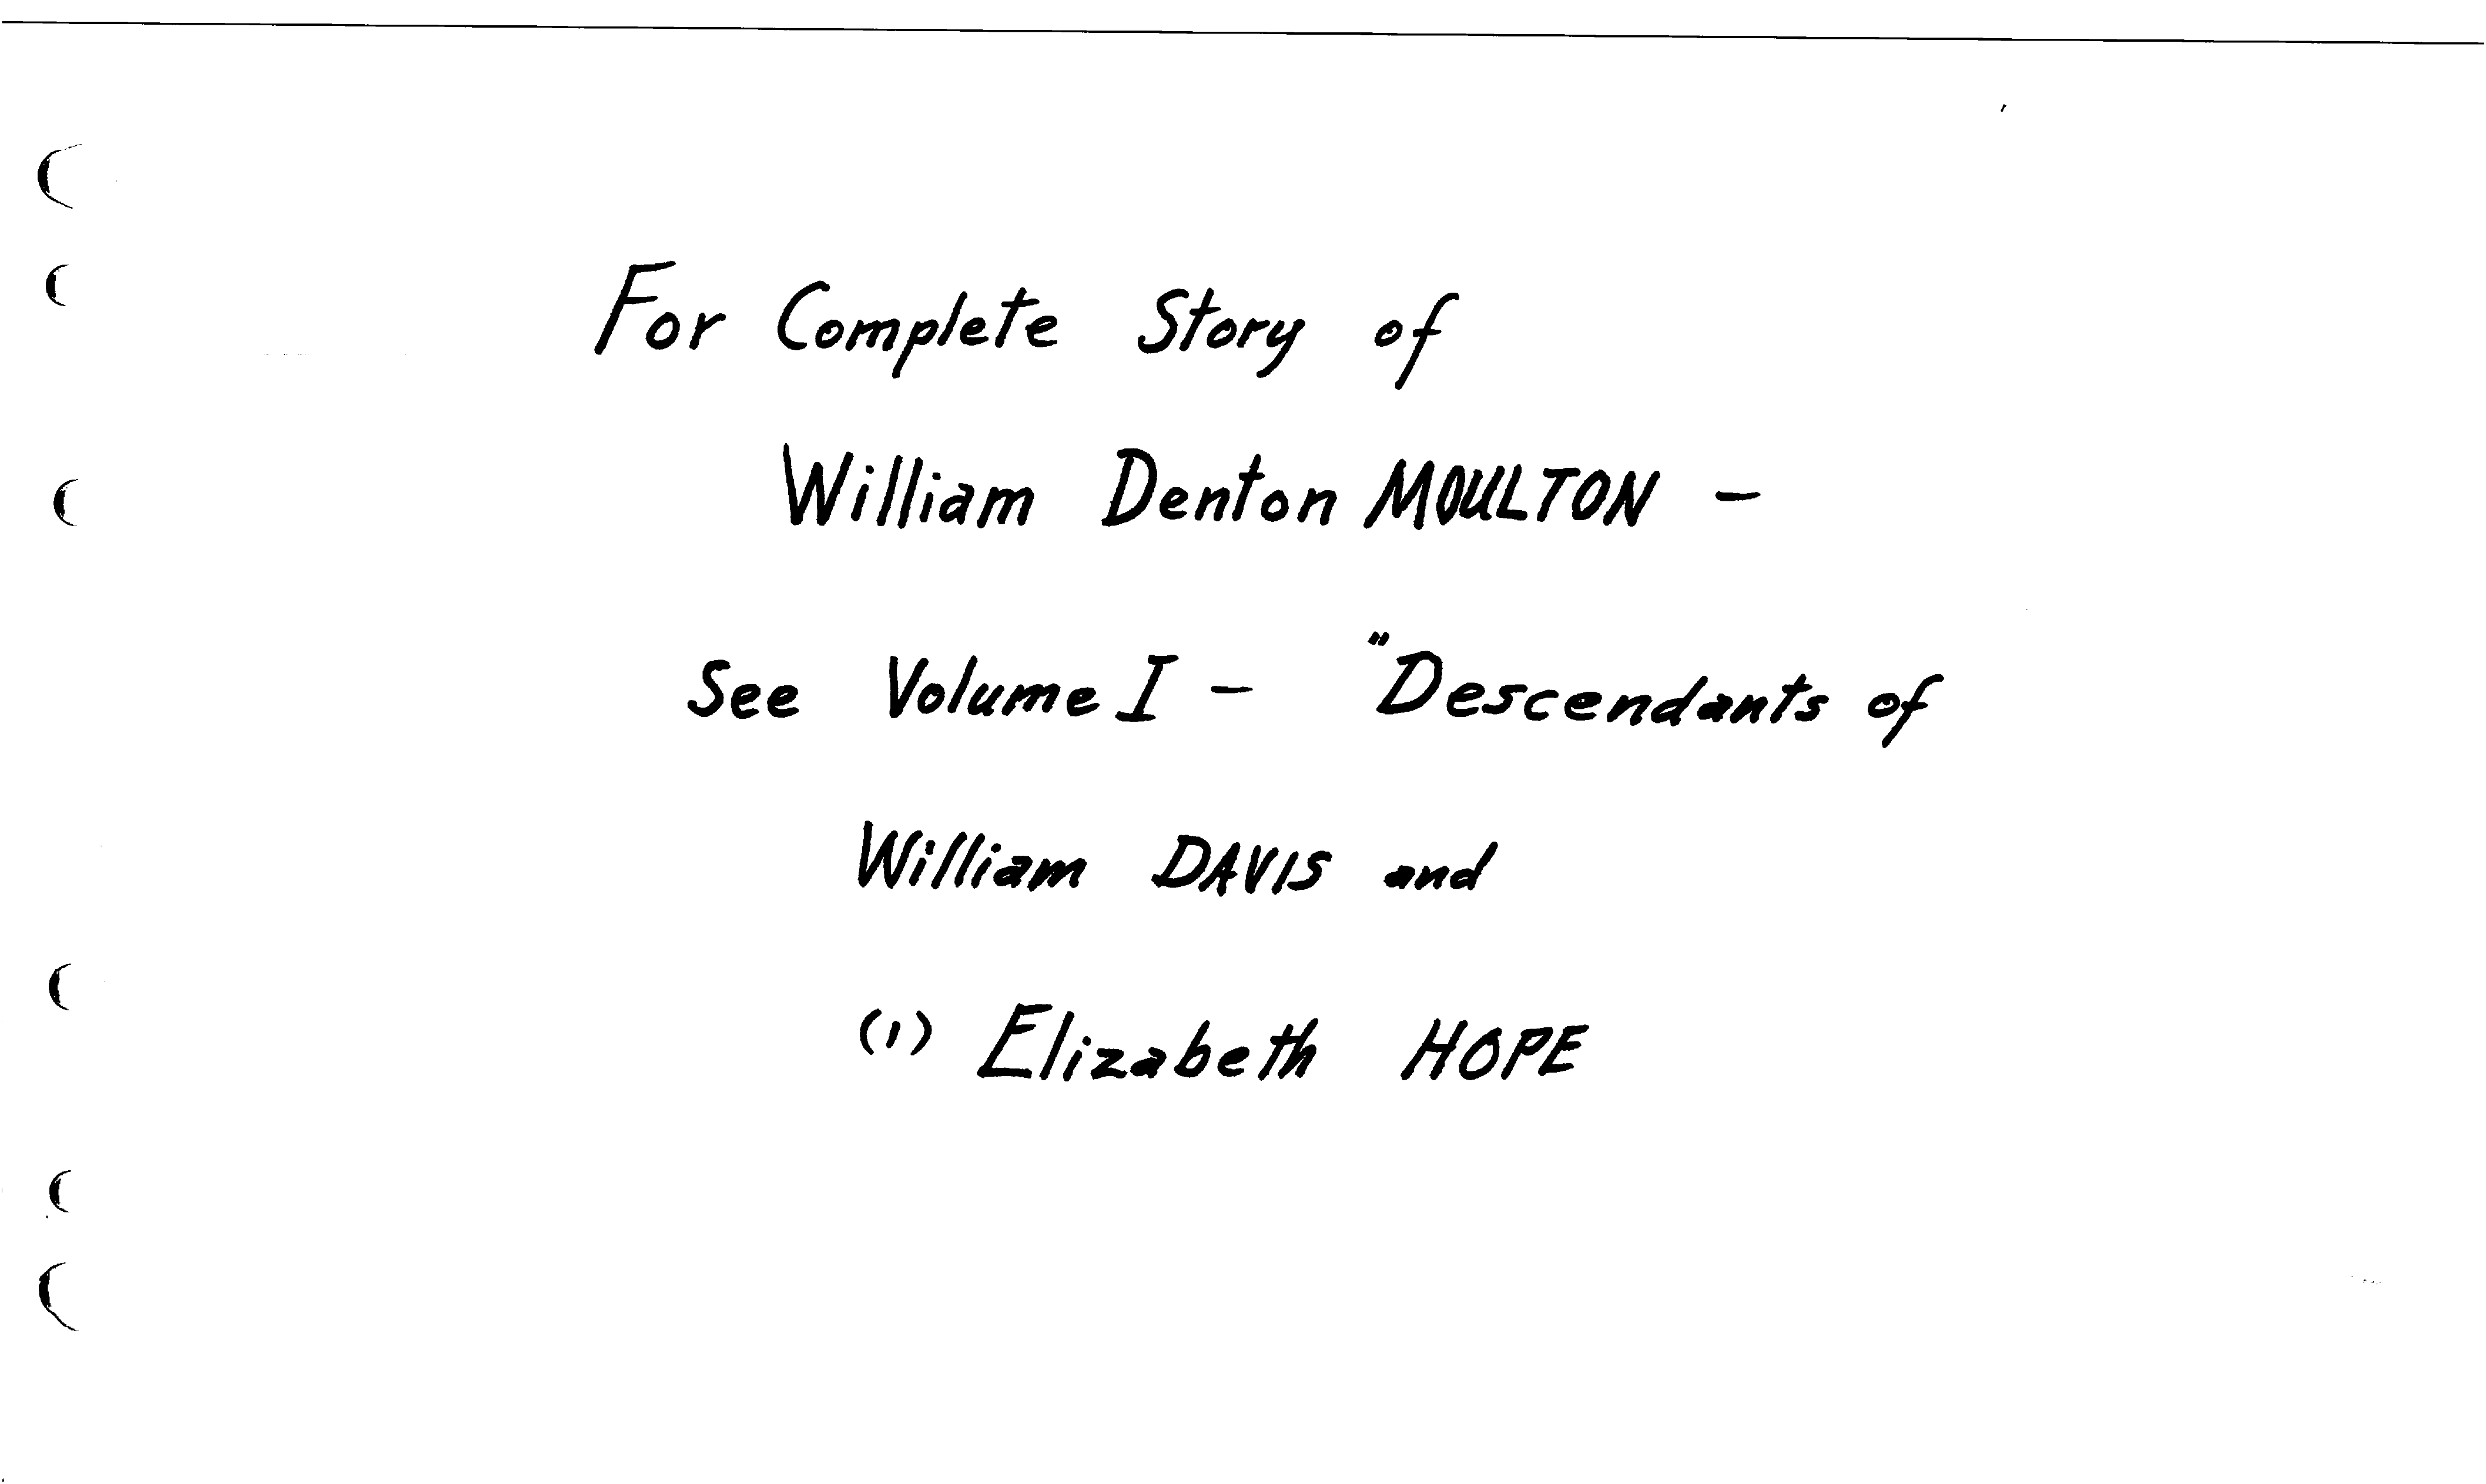 For Complete Story of
William Denton MOULTON -
See Volume I - "Descendants of
William DAVIS and
(1) Elizabeth HOPE